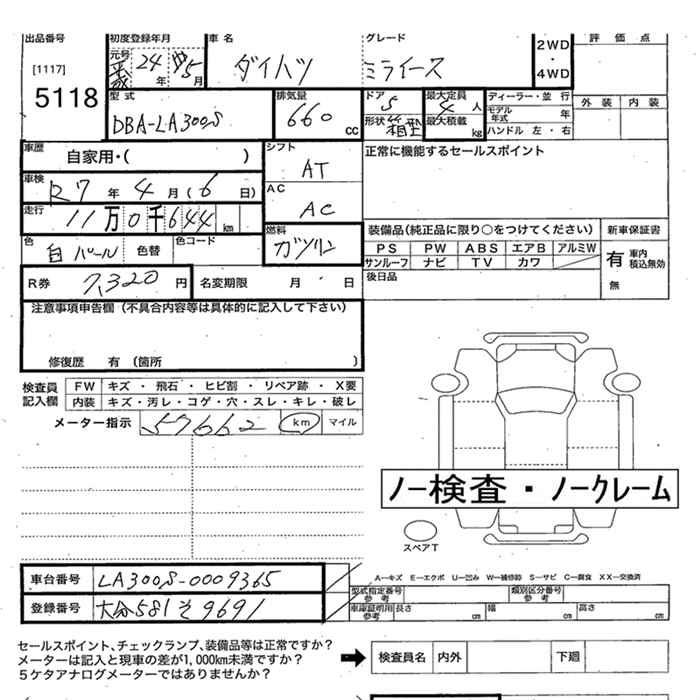 出品番号 初度登録年月 車 名 グレード 評 価 点
[1117] 元号 24 年 5 月 ダイハツ ミライース 2WD・4WD
5118 型 式 排気量 ドア 5 最大定員 4 人 ディーラー・並 行 外 装 内 装
DBA-LA300S 660 cc 形状 箱型 最大積載 kg モデル年式 年
ハンドル 左・右
車歴 自家用・( ) シフト AT 正常に機能するセールスポイント
車検 R7 年 4 月 (6 日) AC AC
走行 11 万 0 千 644 km 燃料 ガソリン 装備品(純正品に限り○をつけてください) 新車保証書
色 白パール 色替 色コード PS PW ABS エアB アルミW 有 車内積込無効
サンルーフ ナビ TV カワ
R券 7,320 円 名変期限 月 日 後日品 無
注意事項申告欄(不具合内容等は具体的に記入して下さい)
修復歴 有 (箇所 )
検査員記入欄 FW キズ ・ 飛石 ・ ヒビ割 ・ リペア跡 ・ X要
内装 キズ・汚レ・コゲ・穴・スレ・キレ・破レ
メーター指示 57662 km マイル
ノー検査・ノークレーム
スペアT
車台番号 LA300S-0009365 A―キズ E―エクボ U―凹み W―補修跡 S―サビ C―腐食 XX―交換済
型式指定番号参考 類別区分番号参考
登録番号 大分581そ9691 車庫証明用参考 長さ cm 幅 cm 高さ cm
セールスポイント、チェックランプ、装備品等は正常ですか?
メーターは記入と現車の差が1,000km未満ですか? 検査員名 内外 下廻
5ケタアナログメーターではありませんか?